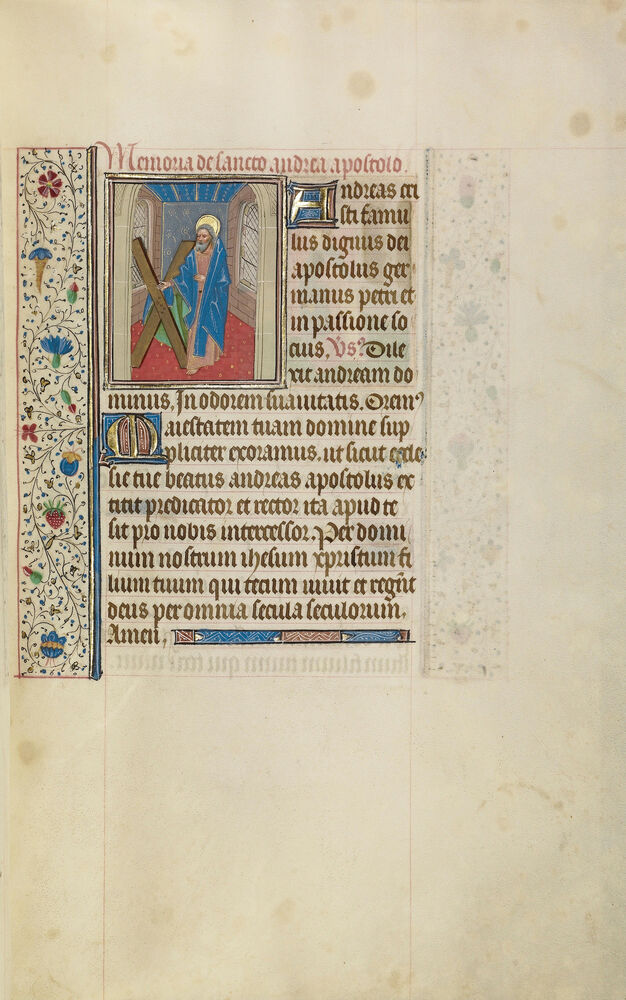 Memoria de sancto andrea apostolo.
Andreas cri
sti famu
lus dignus dei
apostolus ger
manus petri et
in passione so
cius. Vs? Dile
xit andream do
minus. In odorem suauitatis. Orem?
Maiestatem tuam domine sup
pliciter exoramus. ut sicut eccle
sie tue beatus andreas apostolus ex
titit predicator et rector ita apud te
sit pro nobis intercessor. Per domi
num nostrum ihesum xpristum fi
lium tuum qui tecum uiuit et regnit
deus per omnia secula seculorum.
Amen.